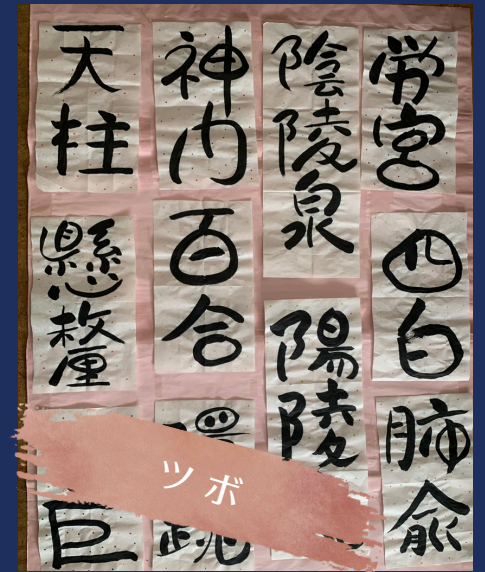 労宮
四白
肺兪
陰陵泉
陽陵
神内
百合
跳
天柱
懸釐
巨
ツボ